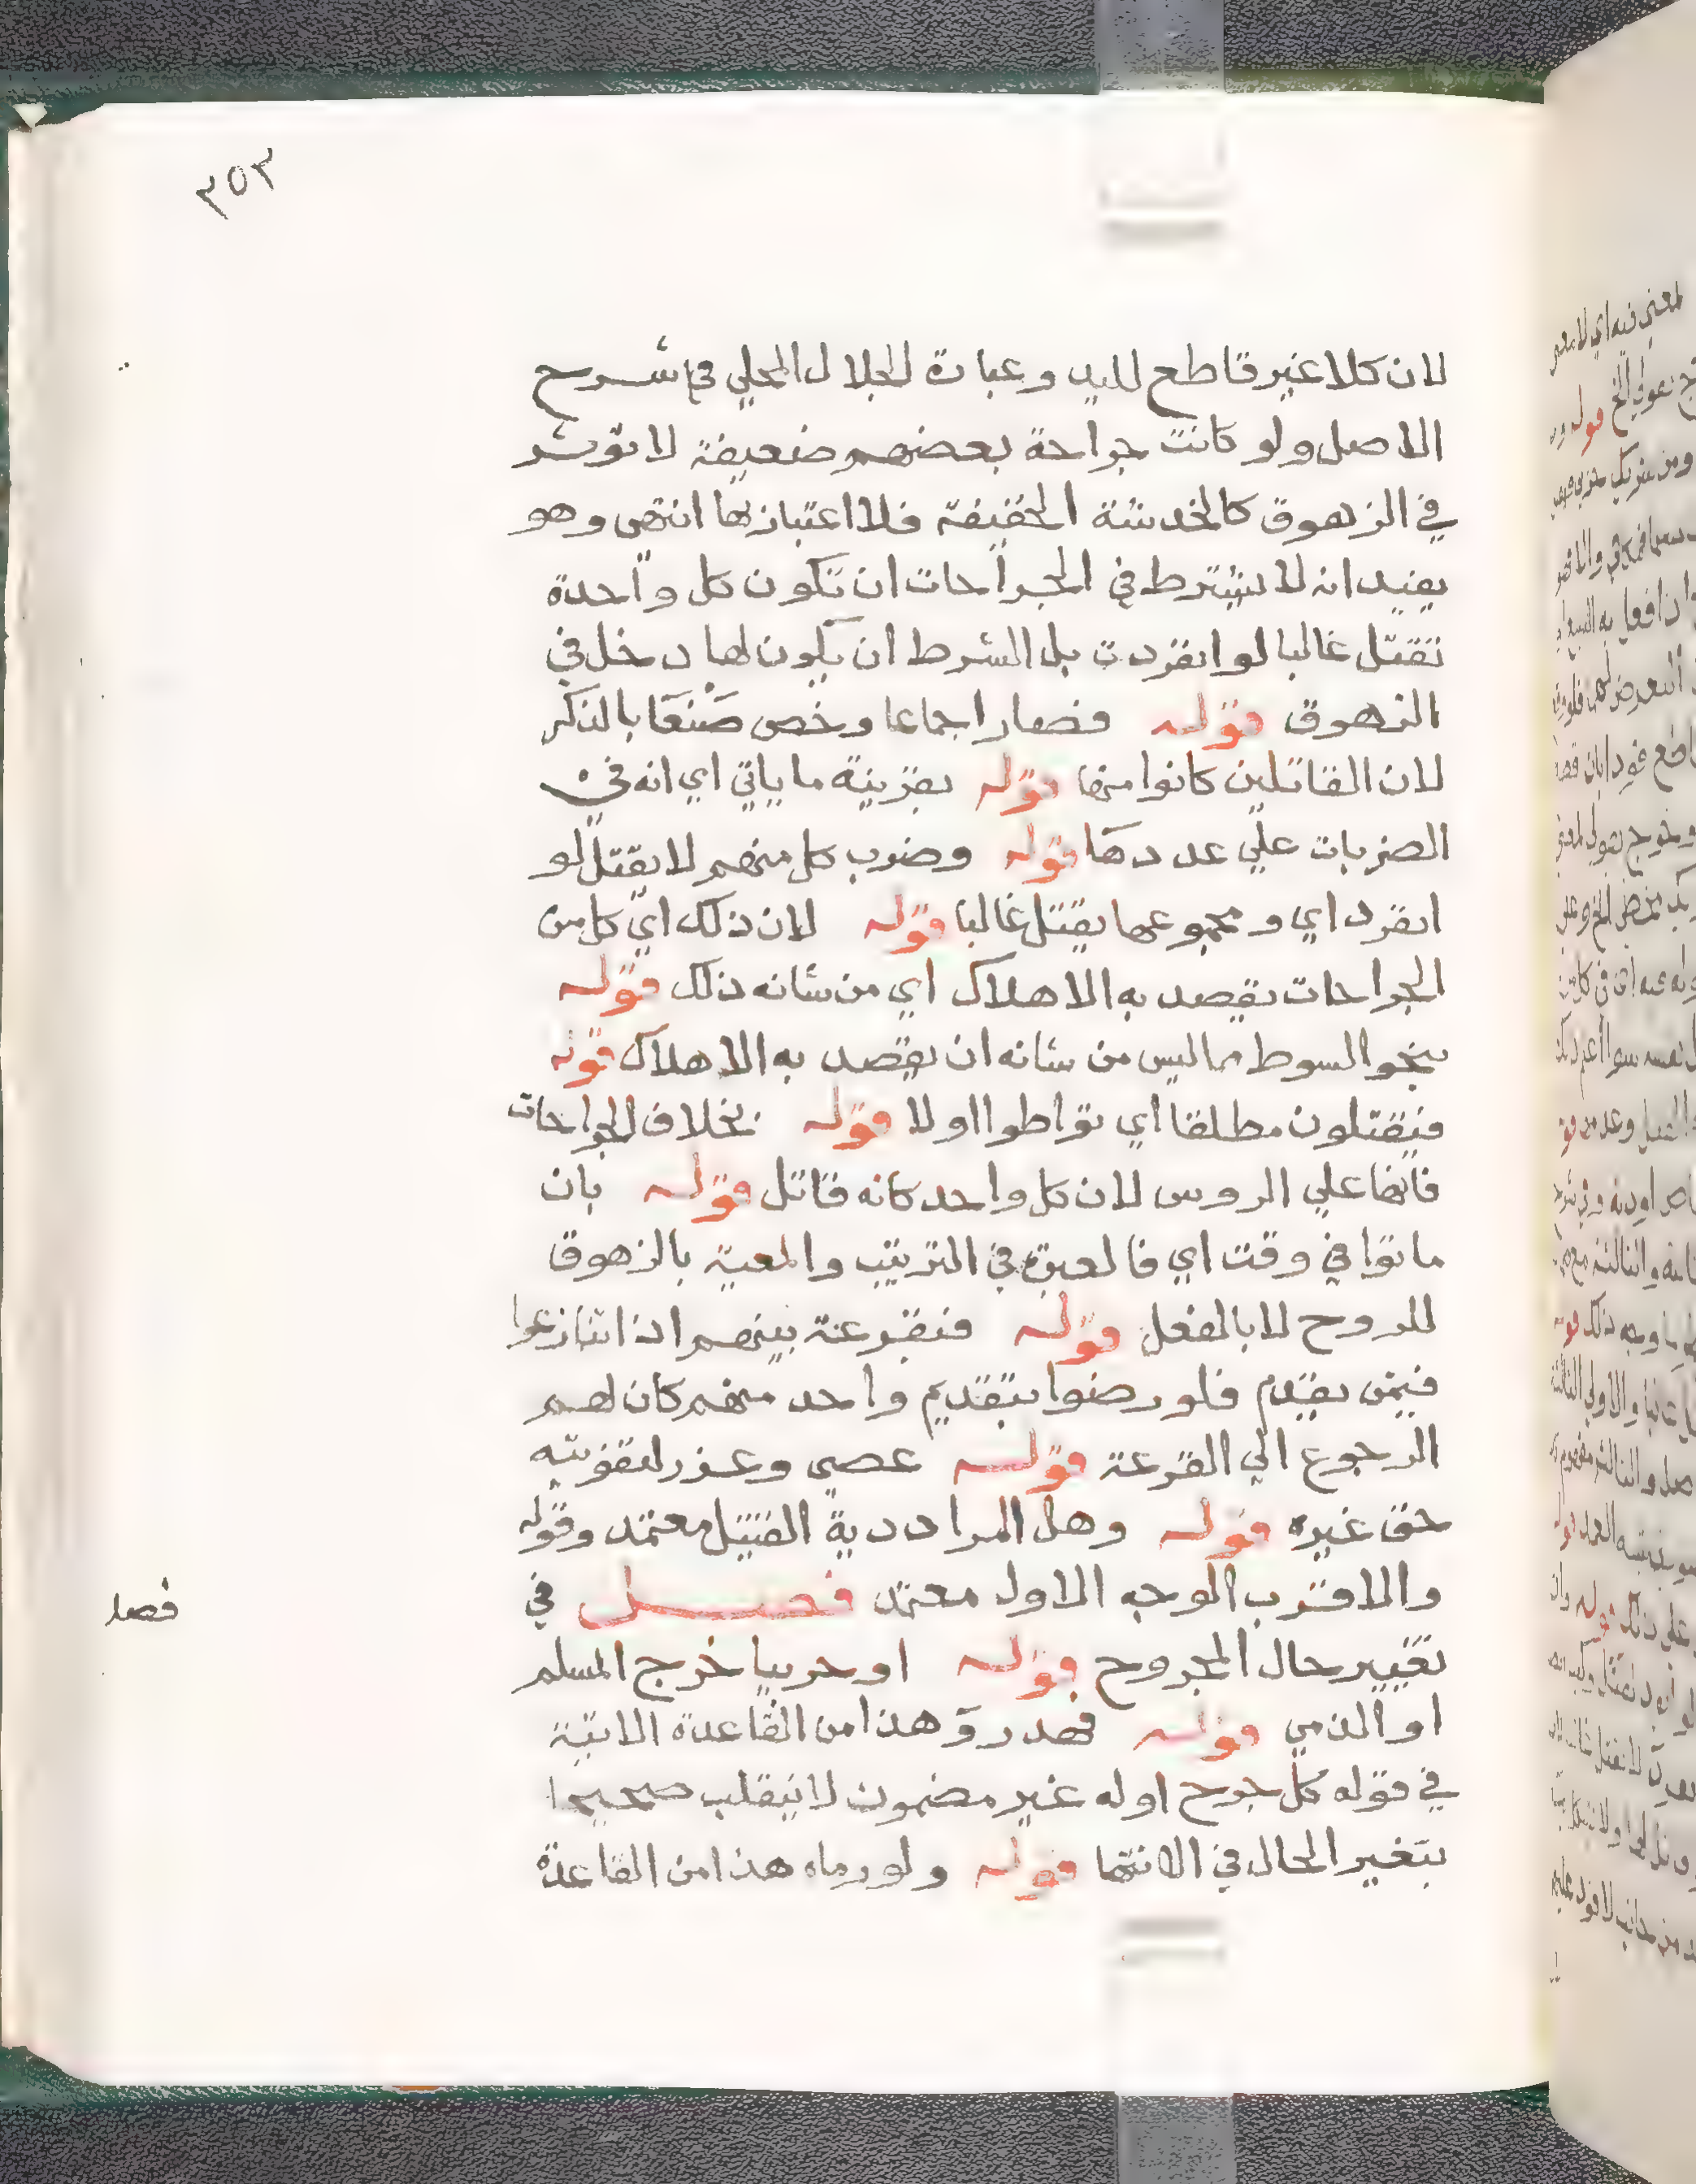 ٣٥٣
لان كلا غير قاطع لليد وعبارة الجلال المحلي في شرح
الاصل ولو كانت جراحة بعضهم ضعيفة لا تؤثر
في الزهوق كالخدشة الخفيفة فلا اعتبار بها انتهى وهو
يفيد انه لا يشترط في الجراحات ان تكون كل واحدة
تقتل غالبا لو انفردت بل الشرط ان يكون لها دخل في
الزهوق قوله فصار اجماعا وخص صنعا بالذكر
لان القاتلين كانوا منها قوله بقرينة ما ياتي اي انه في
الضربات علي عددها قوله وضرب كل منهم لا يقتل لو
انفرد اي ومجموعها يقتل غالبا قوله لان ذلك اي كل من
الجراحات يقصد به الاهلاك اي من شانه ذلك قوله
بنحو السوط مما ليس من شانه ان يقصد به الاهلاك قوله
فيقتلون مطلقا اي تواطوا اولا قوله بخلاف الجراحات
فانها علي الروس لان كل واحد كانه قاتل قوله بان
ماتوا في وقت اي فالعبرة في الترتيب والمعية بالزهوق
للروح لا بالفعل قوله فبقرعة بينهم اذا تنازعوا
فيمن يقدم فلو رضوا بتقديم واحد منهم كان لهم
الرجوع الي القرعة قوله عصي وعزر لتفويته
حق غيره قوله وهل المراد دية القتيل معتمد وقوله
والاقرب الوجه الاول معتمد فصل في
فصل
تغيير حال المجروح قوله او حربيا خرج المسلم
او الذمي قوله فهدر وهذا من القاعدة الاتية
في قوله كل جرح اوله غير مضمون لا ينقلب صحيحا
بتغير الحال في الانتها قوله ولو رماه هذا من القاعدة